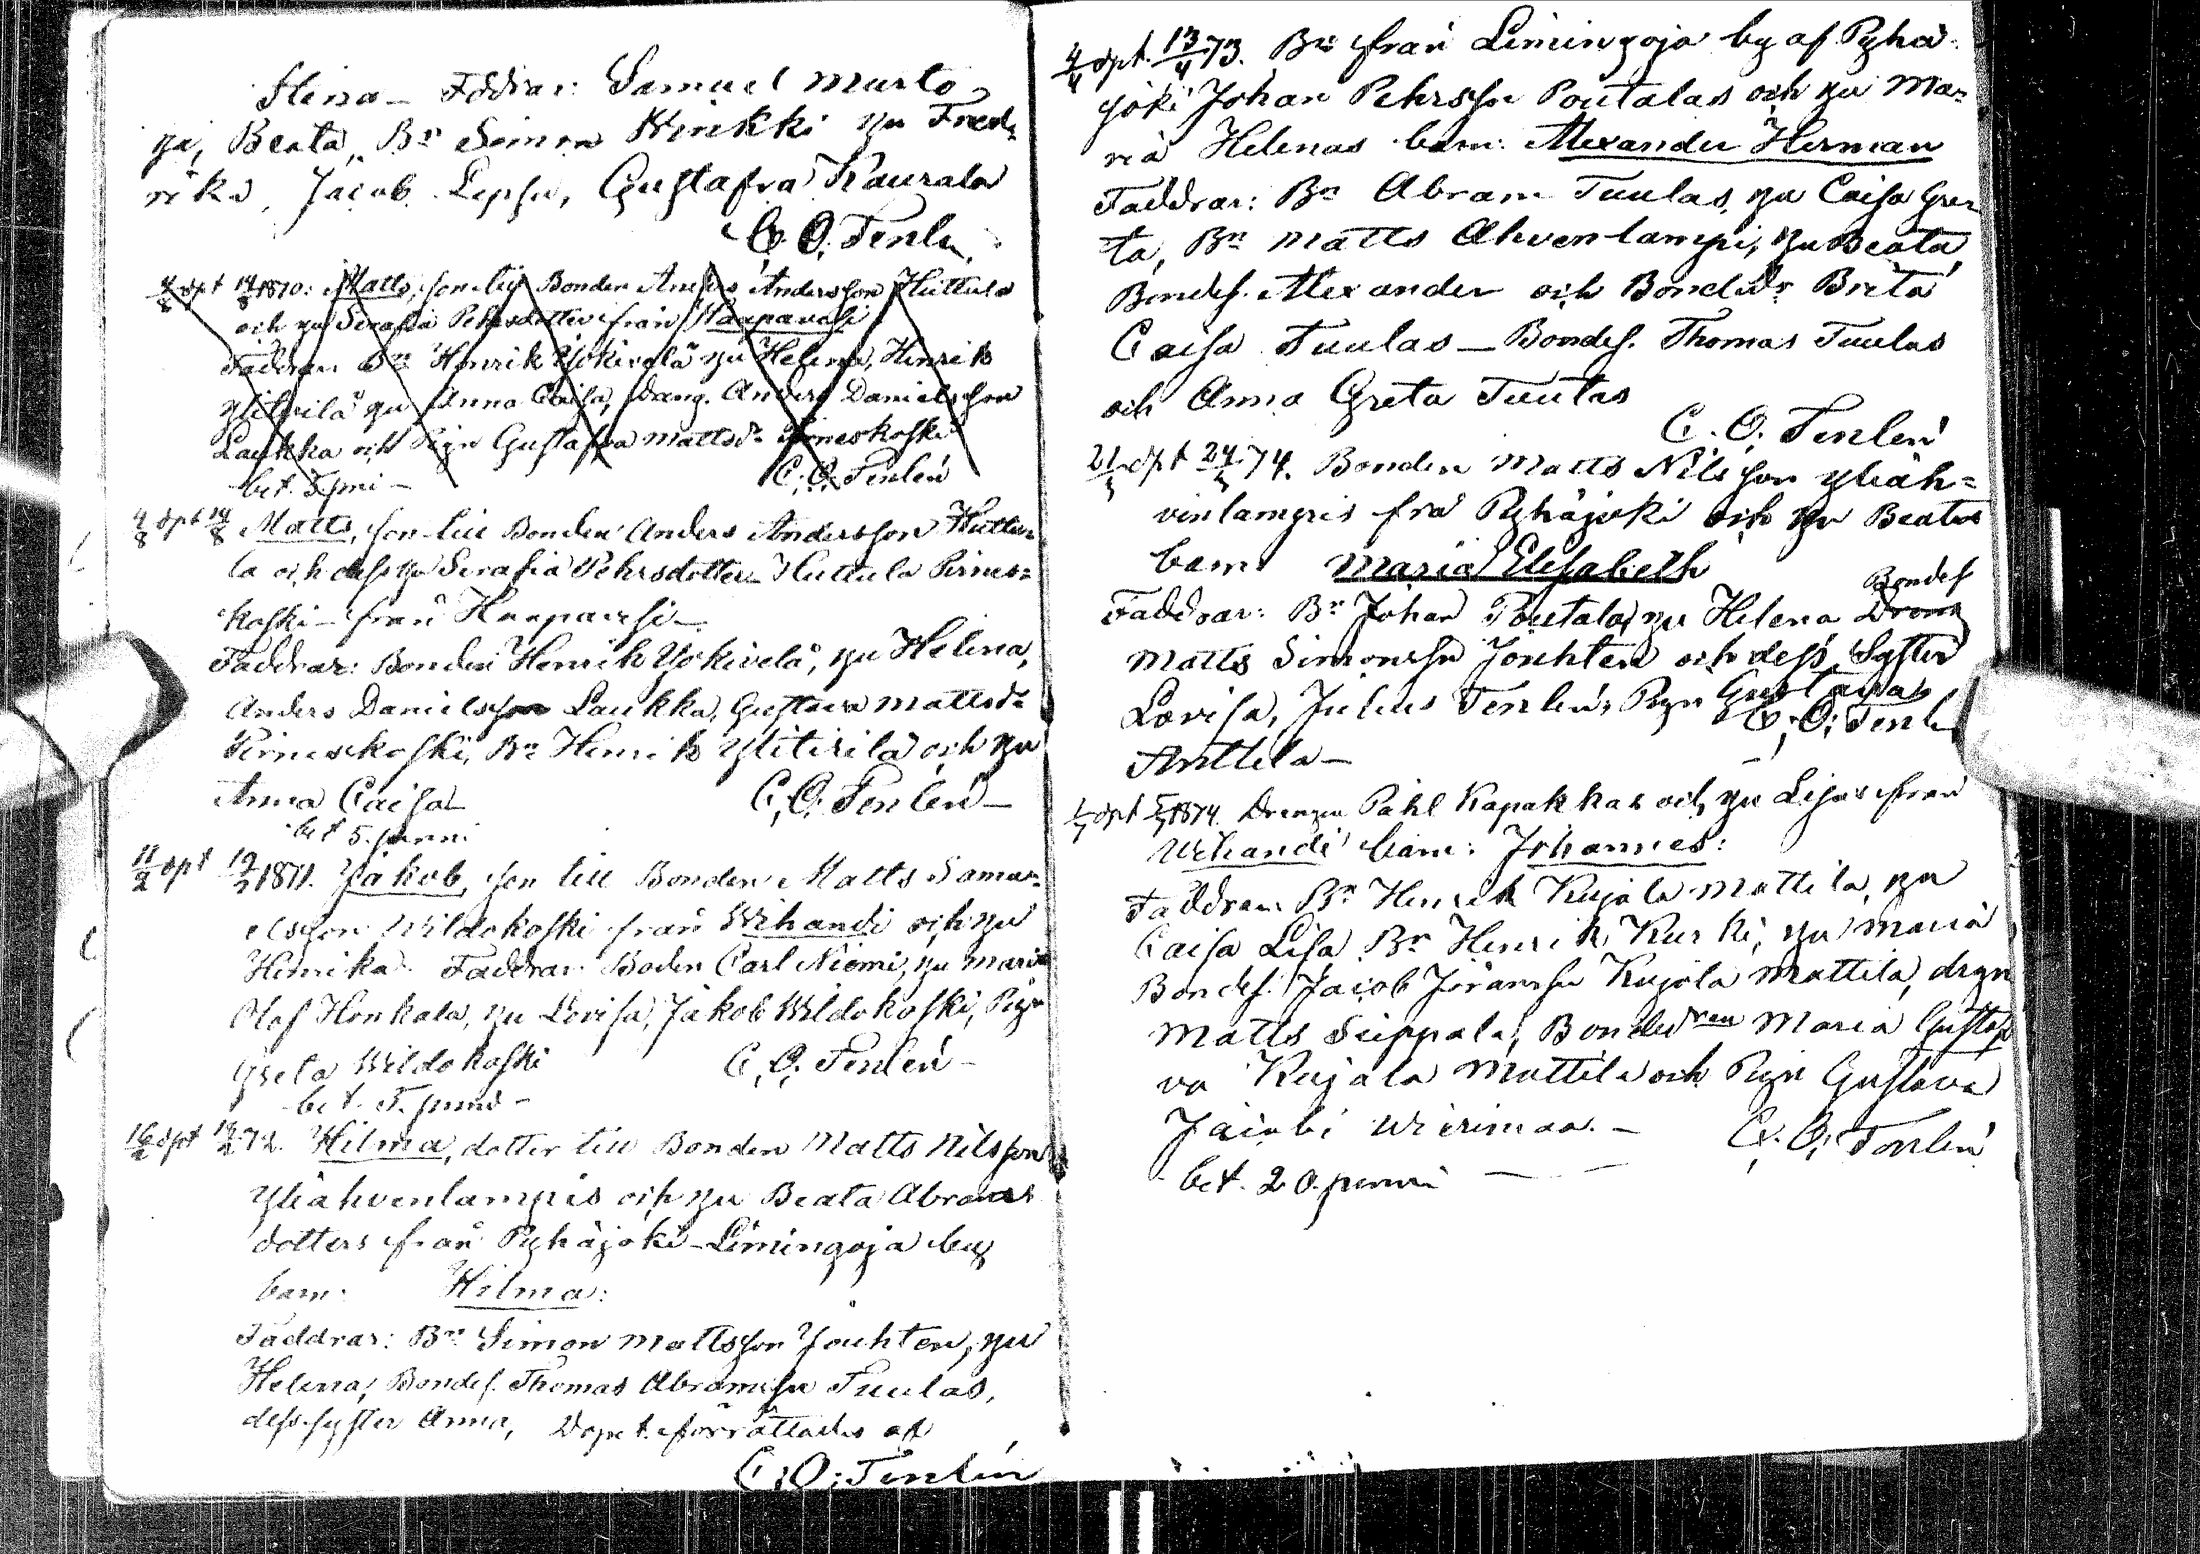 Stina — Faddrar: Samuel Murto
hu, Beata, Bn Simon Winkki hu Fred-
rika, Jacob Lepsu, Gustafva Kaurala
C. O. Tenlén
4/8 dpt 14/8 1870: Matts, son till Bonden Anders Andersson Huttula
och hu Serafia Pehrsdotter från Haapavesi
Faddrar Bn Henrik Yökivelä hu Helena, Henrik
Ylitirilä hu Anna Caisa, Dräng. Anders Danielsson
Laukka och Pign Gustafva Mattsdr Pirneskoski
bet. 5. pni — C. O. Tenlén
4/8 dpt 14/8 Matts, son till Bonden Anders Andersson Huttu-
la och dess hu Serafia Pehrsdotter Huttula Pirnes=
koski — från Haapavesi —
Faddrar: Bonden Henrik Yökivelä, hu Helena,
Anders Danielsson Laukka, Gustava Mattsdr
Pirneskoski, Bn Henrik Ylitirilä och hu
Anna Caisa C. O. Tenlén —
bet 5. penni
11/2 dpt 19/2 1871. Jakob, son till Bonden Matts Samu-
elsson Wildokoski från Wihandi och hu
Henrika. Faddrar Boden Carl Niemi, hu Maria
Olof Honkala, hu Lovisa, Jakob Wildokoski, Pign
Greta Wildokoski C. O. Tenlén —
bet. 5. penni —
16/2 dpt 19/2 72. Hilma, dotter till Bonden Matts Nilsson
Yliähvenlampis och hu Beata Abrams
dotters från Pyhäjoki — Limingoja by
barn: Hilma:
Faddrar: Bn Simon Mattsson Jouhten, hu
Helena, Bondes. Thomas Abramssn Tuulas,
dess syster Anna, Dopet förrättades af
C. O. Tenlén
4/4 dpt. 13/4 73. Bn från Limingoja by af Pyhä-
joki Johan Pehrssn Poutalas och hu Ma-
ria Helenas barn: Alexander Herman
Faddrar: Bn Abram Tuulas, hu Caisa Gre-
ta, Bn Matts Ahvenlampi, hu Beata,
Bondes. Alexander och Bondedr Brita
Caisa Tuulas — Bondes. Thomas Tuulas
och Anna Greta Tuulas
C. O. Tenlén
21/5 dpt 24/5 74. Bonden Matts Nilsson Yliäh=
venlampis frå Pyhäjoki och hu Beatas
barn Maria Elisabeth
Bondes
Faddrar: Bn Johan Poutala, hu Helena Dräng
Matts Simonssn Jouhten och dess Syster
Lovisa, Julius Tenlén, Pign Gustava
Anttila — C. O. Tenlén
1/7 dpt 5/7 1874. Drengen Påhl Kapakkas och hu Lisas från
Wihandi barn: Johannes:
Faddrar Bn Henrik Kujala Mattila, hu
Caisa Lisa Bn Henrik Kurki, hu Maria
Bondes. Jacob Jöranssn Kujala Mattila, drgn
Matts Seppala, Bondedren Maria Gustaf
va Kujala Mattila och Pign Gustava
Jacobi Wierimaa. — C. O. Tenlén
bet. 20. penni —